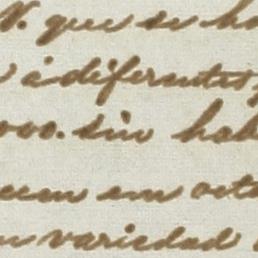 V. que se ha
á diferentes,
000. sin hab
en octo
variedad